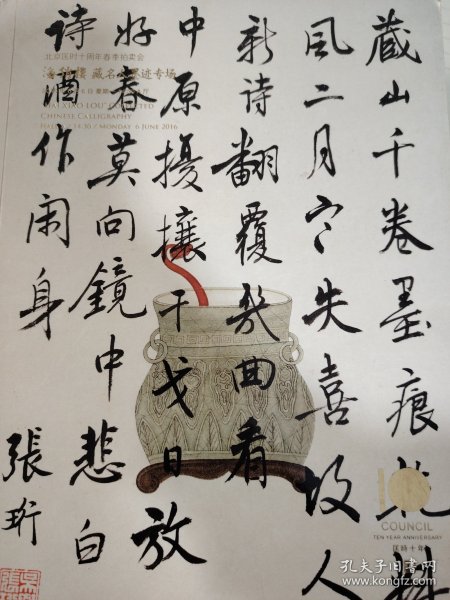 藏山千卷墨痕
風二月它失喜故人
新诗翻覆幾曲看
中原擾攘干戈日放
好春莫向鏡中悲白
诗酒作闲身
張珩
北京匡时十周年春季拍卖会
CHINESE CALLIGRAPHY
MONDAY 6 JUNE 2016
COUNCIL
TEN YEAR ANNIVERSARY
匡時十年
孔夫子旧书网
www.kongfz.com